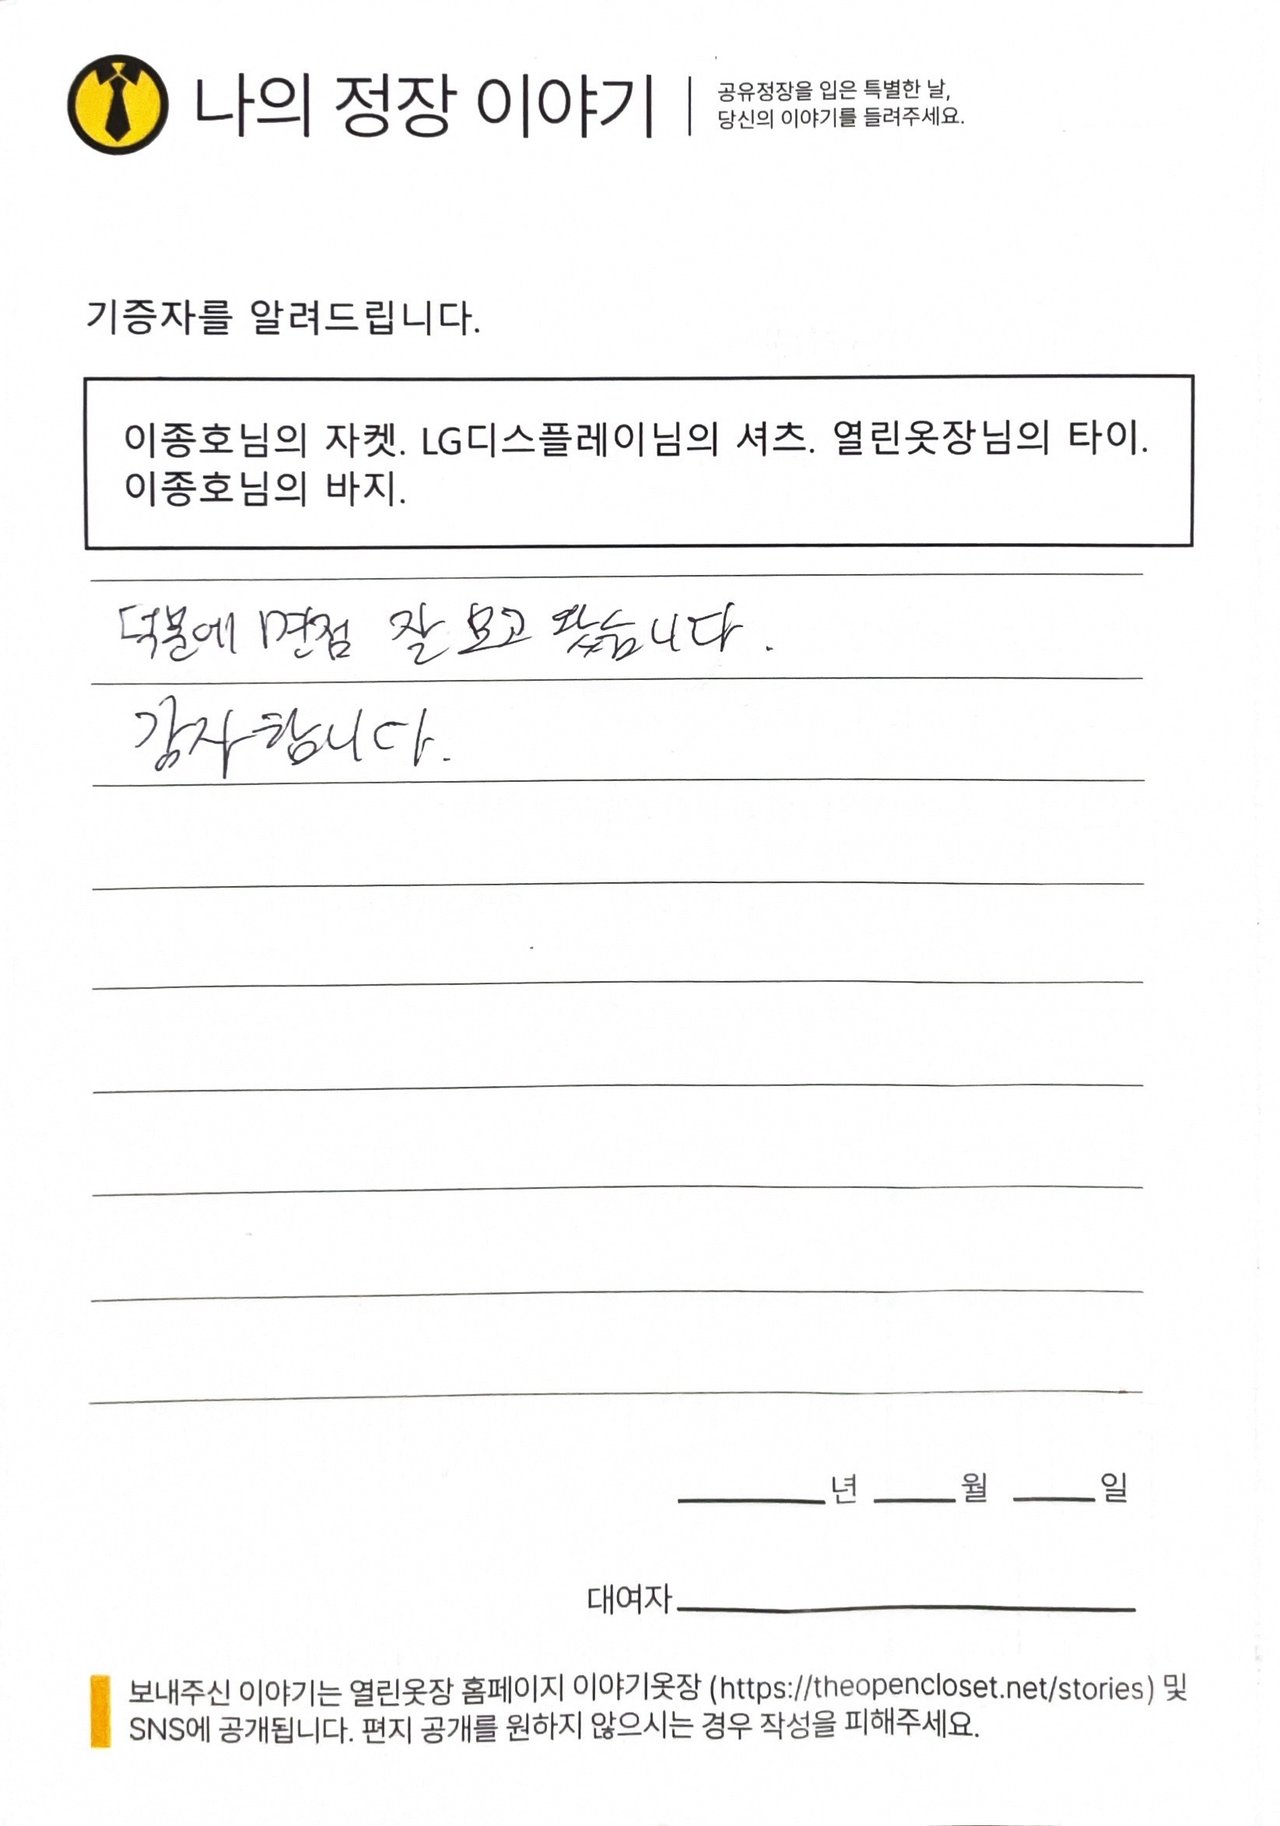 나의 정장 이야기
공유정장을 입은 특별한 날,
당신의 이야기를 들려주세요.
기증자를 알려드립니다.
이종호님의 자켓. LG디스플레이님의 셔츠. 열린옷장님의 타이.
이종호님의 바지.
덕분에 면접 잘 보고 왔습니다.
감사합니다.
년 월 일
대여자
보내주신 이야기는 열린옷장 홈페이지 이야기옷장 (https://theopencloset.net/stories) 및
SNS에 공개됩니다. 편지 공개를 원하지 않으시는 경우 작성을 피해주세요.